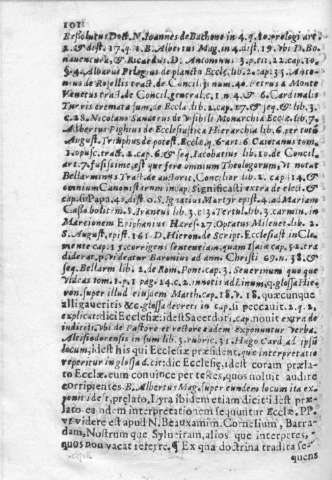 1011
Resolutus Doct. N. Ioannes de Bachone in 4. q. 10. prologi art.
2. & dist. 17. q. 1. B. Albertus Mag. in 4. dist. 19. vbi D. Bo-
nauentura, & Ricardus. D. Antoninus 3. p. tit. 22. cap. 10.
§. 4. Albarus Pelagius de planctu Eccle. lib. 2. cap. 33. Anto-
nius de Rosellis tract. de Concil. num. 40. Petrus à Monte
Venetus tract. de Concil. general. c. 1. n. 4. & 6. Cardinalis
Turris cremata sum. de Eccla. lib. 2. cap. 27. & seq. & lib. 3.
c. 28. Nicolaus Sanderus de visibili Monarchia Ecclæ. lib. 7.
Albertus Pighius de Ecclesiastica Hierarchia lib. 6. per totū
August. Triumphus de potest. Eccle. q. 6. art. 6. Caietanus tom.
1. opusc. tract. 2. cap. 6. & seq. Iacobatius lib. 10. de Concil.
art. 7. fusissime, est que fere omnium Theologorum, vt notat
Bellarminus Tract. de auctorit. Concilior. lib. 2. cap. 14. &
omnium Canonistarum in cap. Significasti extra de elect. &
cap. si Papa 40. dist. D. S. Ignatius Martyr epist. 4. ad Mariam
Cassobolit. in. S. Iraneus lib. 3. c. 3. Tertul. lib. 3. carmin. in
Marcionem Eriphanius Hæres. 27. Optatus Mileuet. lib. 2.
S. August. epist. 161. D. Hieron. de Script. Ecclesiast. in Cle-
mente cap. 15. corrigens sententiam, quam Isaiæ cap. 52. tra
diderat, p. Videatur Baronius ad ann. Christi 69. n. 38. &
seq. Bellarm. lib. 2. de Rom. Pont. cap. 3. Seuerinum quoque
videas tom. 1. p. 1. pag. 24. c. 2. innotis ad Linum, q. glossa Hie
ron. super illud eiusdem Matth. cap. 18. v. 18. quæcunque
alligaueritis &c. glossa deuere in cap. si peccauit 2. q. 2.
explicat edici Ecclesiæ: id est Sacerdoti, cap. nouit extra de
indiciis. vbi de Pastore et rectore eadem exponuntur verba.
Altisiodorensis in sum lib. 3. rubric. 31. Hugo Card. ad ipsū
locum, id est his qui Ecclesiæ præsident, quæ interpretatio
reperitur in glossa Z. citidic Ecclesiæ, id est coram prælato
Ecclæ. cum conuince per testes, quos noluit audire
corripientes. B. Albertus Mag. super eundem locum ita ex-
ponit id est, prelato, Lyra ibidem etiam dicit id est præ-
lato. eandem interpretationem sequuntur Ecclæ. PP.
vt videre est apud N. Beauxamin. Cornelium, Barra-
dam, Nostrum que Sylueiram, alios, que interpetes,
quos non vacat referre. ¶ Ex qua doctrina tradita se-
quens